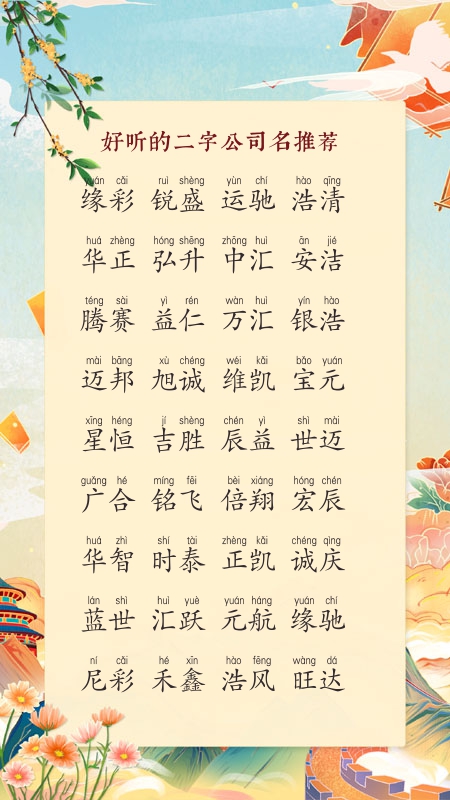 好听的二字公司名推荐
yuán cǎi ruì shèng yùn chí hào qīng
缘彩 锐盛 运驰 浩清
huá zhèng hóng shēng zhōng huì ān jié
华正 弘升 中汇 安洁
téng sài yì rén wàn huì yín hào
腾赛 益仁 万汇 银浩
mài bāng xù chéng wéi kǎi bǎo yuán
迈邦 旭诚 维凯 宝元
xīng héng jí shèng chén yì shì mài
星恒 吉胜 辰益 世迈
guǎng hé míng fēi bèi xiáng hóng chén
广合 铭飞 倍翔 宏辰
huá zhì shí tài zhèng kǎi chéng qìng
华智 时泰 正凯 诚庆
lán shì huì yuè yuán háng yuán chí
蓝世 汇跃 元航 缘驰
ní cǎi hé xīn hào fēng wàng dá
尼彩 禾鑫 浩风 旺达